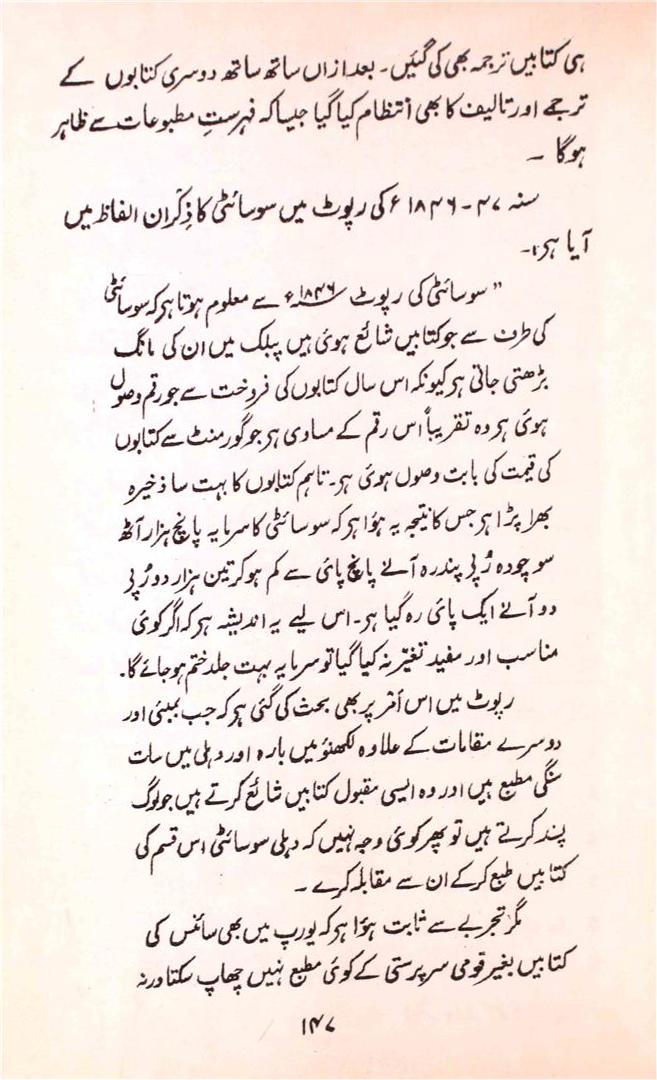 ہی کتابیں ترجمہ بھی کی گئیں۔ بعد ازاں ساتھ ساتھ دوسری کتابوں کے
ترجمے اور تالیف کا بھی انتظام کیا گیا جیسا کہ فہرستِ مطبوعات سے ظاہر
ہوگا ۔
سنہ ۴۷ - ۱۸۴۶ء کی رپوٹ میں سوسائٹی کا ذِکر ان الفاظ میں
آیا ہی:۔
" سوسائٹی کی رپوٹ ۱۸۴۶ء سے معلوم ہوتا ہی کہ سوسائٹی
کی طرف سے جو کتابیں شائع ہوئی ہیں پبلک میں ان کی مانگ
بڑھتی جاتی ہی کیونکہ اس سال کتابوں کی فروخت سے جو رقم وصول
ہوئی ہی وہ تقریباً اس رقم کے مساوی ہی جو گورمنٹ سے کتابوں
کی قیمت کی بابت وصول ہوئی ہی۔ تاہم کتابوں کا بہت سا ذخیرہ
بھرا پڑا ہی جس کا نتیجہ یہ ہؤا ہی کہ سوسائٹی کا سرمایہ پانچ ہزار آٹھ
سو چودہ رُپی پندرہ آنے پانچ پائی سے کم ہوکر تین ہزار دو رُپی
دو آنے ایک پائی رہ گیا ہی۔ اس لیے یہ اندیشہ ہی کہ اگر کوئی
مناسب اور مفید تغیّر نہ کیا گیا تو سرمایہ بہت جلد ختم ہوجائے گا۔
رپوٹ میں اس اَمر پر بھی بحث کی گئی ہی کہ جب بمبئی اور
دوسرے مقامات کے علاوہ لکھنؤ میں بارہ اور دہلی میں سات
سنگی مطبع ہیں اور وہ ایسی مقبول کتابیں شائع کرتے ہیں جو لوگ
پسند کرتے ہیں تو پھر کوئی وجہ نہیں کہ دہلی سوسائٹی اس قسم کی
کتابیں طبع کرکے ان سے مقابلہ کرے ۔
مگر تجربے سے ثابت ہؤا ہی کہ یورپ میں بھی سائنس کی
کتابیں بغیر قومی سرپرستی کے کوئی مطبع نہیں چھاپ سکتا ورنہ
۱۴۷